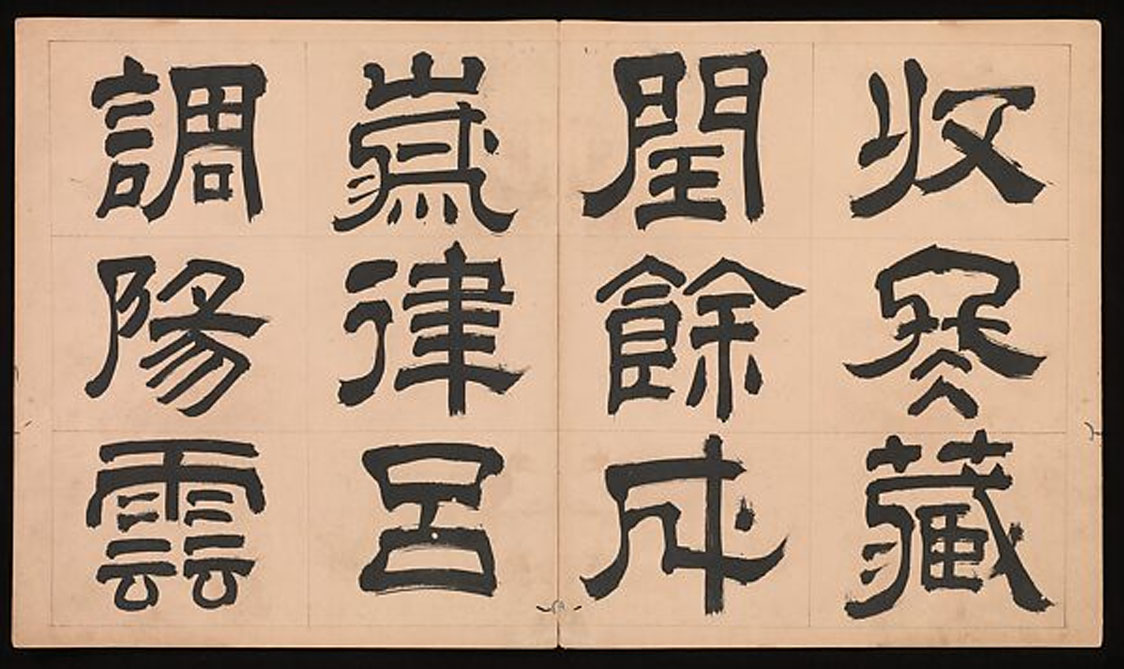 収冬藏
閏餘成
歲律呂
調陽雲